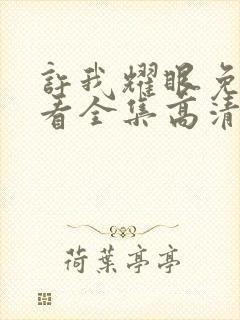 許我耀眼免
看全集高清
荷葉亭亭